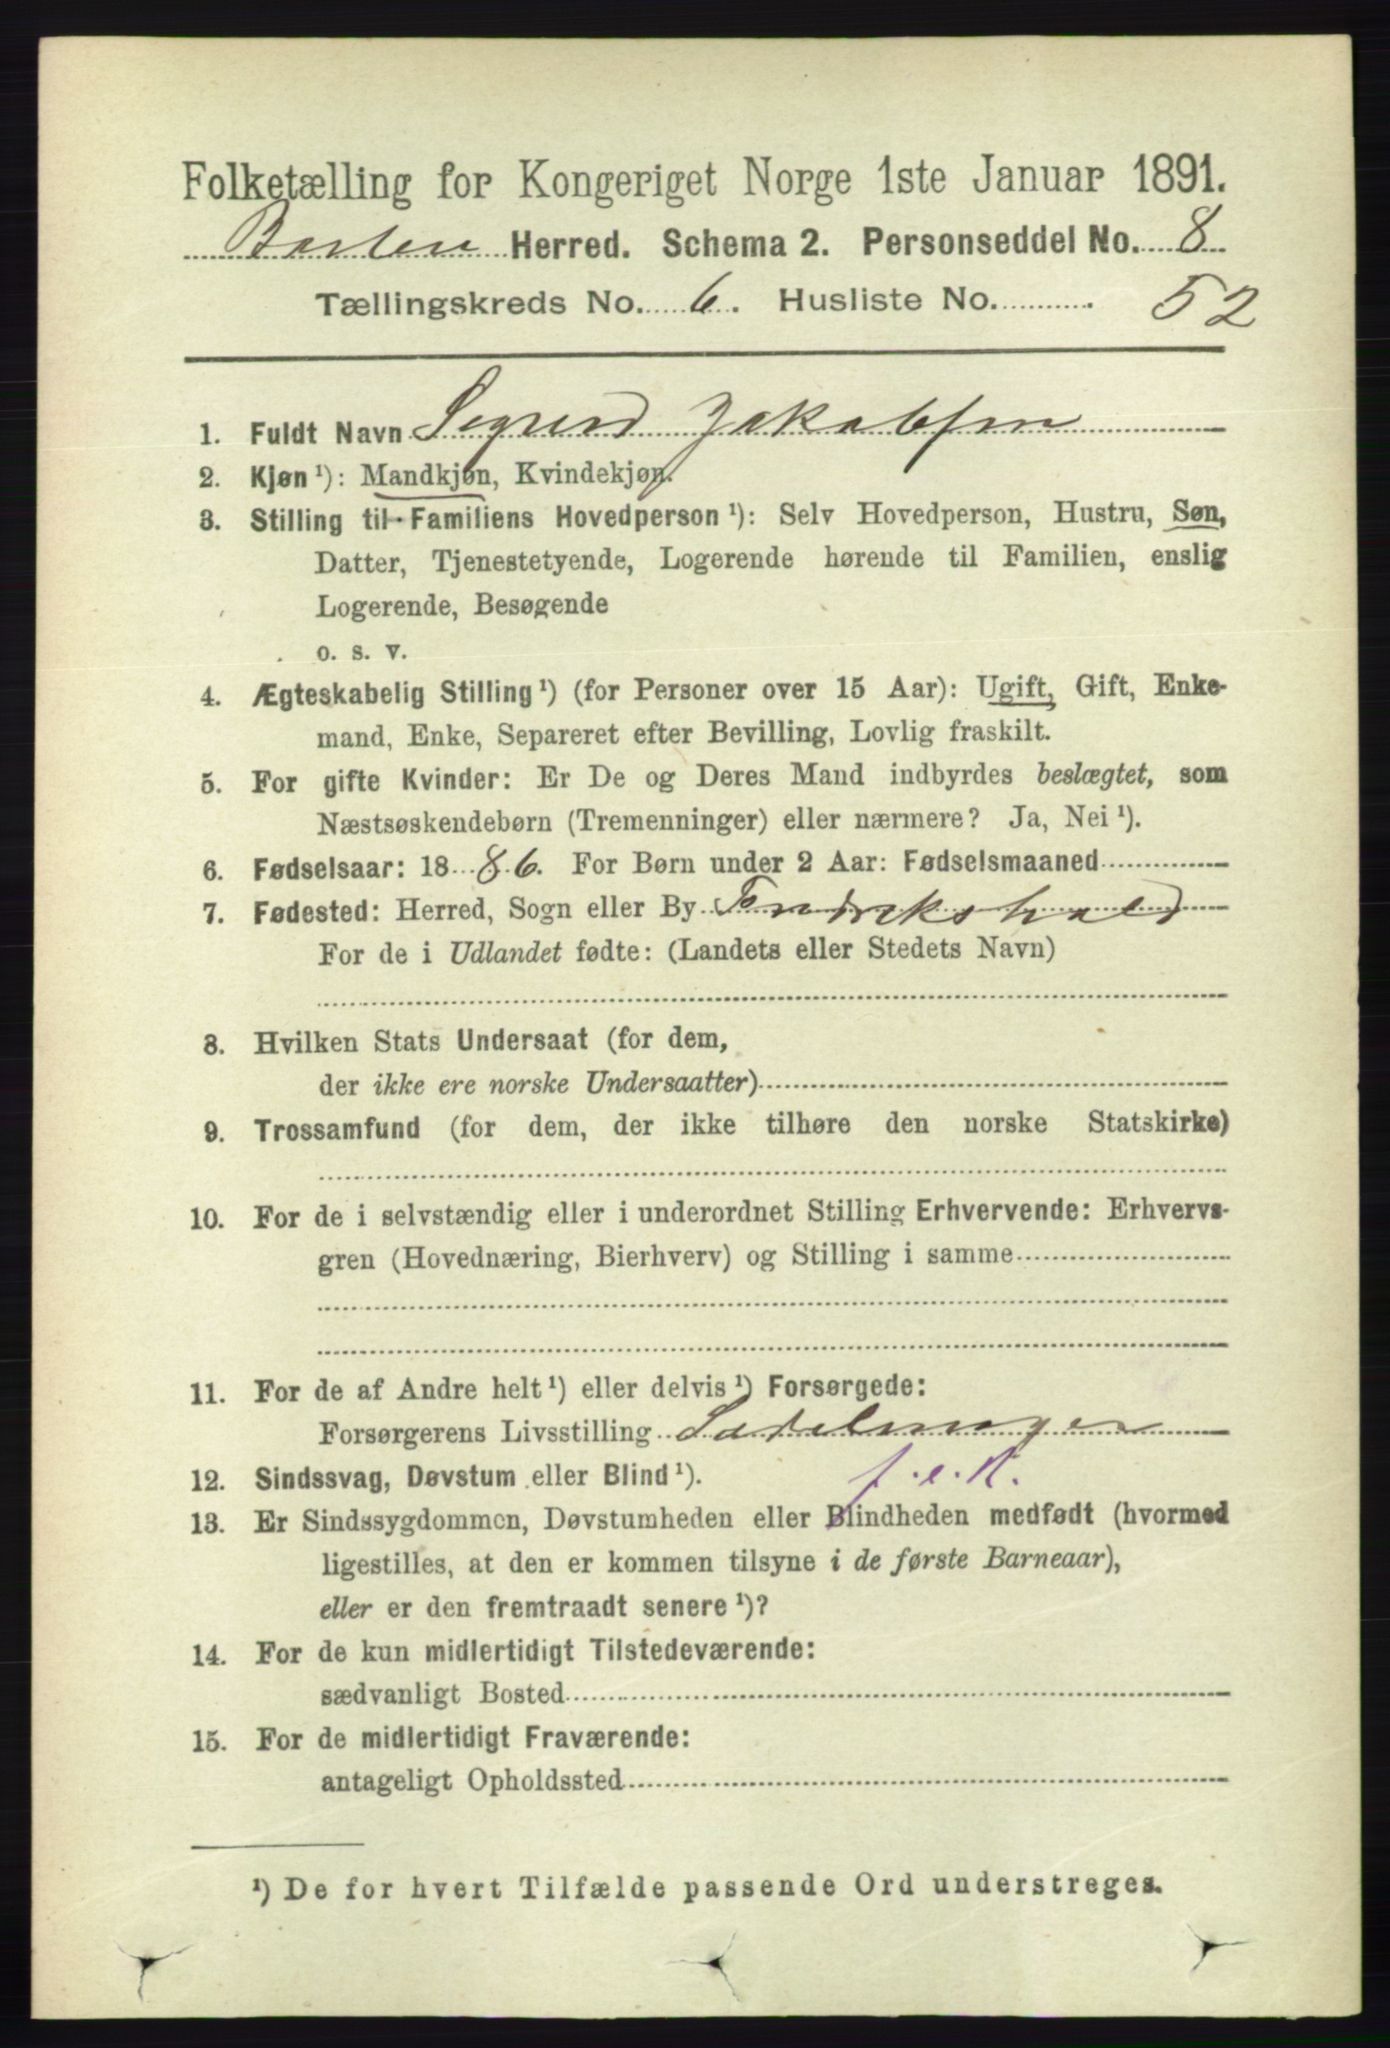 Folketælling for Kongeriget Norge 1ste Januar 1891.
Herred. Schema 2. Personseddel No. 8
Tællingskreds No. 6. Husliste No. 52
1. Fuldt Navn Sigurd Jakobsen
2. Kjøn¹): Mandkjøn, Kvindekjøn.
3. Stilling til Familiens Hovedperson¹): Selv Hovedperson, Hustru, Søn,
Datter, Tjenestetyende, Logerende hørende til Familien, enslig
Logerende, Besøgende
o. s. v.
4. Ægteskabelig Stilling¹) (for Personer over 15 Aar): Ugift, Gift, Enke-
mand, Enke, Separeret efter Bevilling, Lovlig fraskilt.
5. For gifte Kvinder: Er De og Deres Mand indbyrdes beslægtet, som
Næstsøskendebørn (Tremenninger) eller nærmere? Ja, Nei¹).
6. Fødselsaar: 1886. For Børn under 2 Aar: Fødselsmaaned
7. Fødested: Herred, Sogn eller By Fredrikshald
For de i Udlandet fødte: (Landets eller Stedets Navn)
8. Hvilken Stats Undersaat (for dem,
der ikke ere norske Undersaatter)
9. Trossamfund (for dem, der ikke tilhøre den norske Statskirke)
10. For de i selvstændig eller i underordnet Stilling Erhvervende: Erhvervs-
gren (Hovednæring, Bierhverv) og Stilling i samme
11. For de af Andre helt¹) eller delvis¹) Forsørgede:
Forsørgerens Livsstilling Sadelmager
f.e.R.
12. Sindssvag, Døvstum eller Blind¹).
13. Er Sindssygdommen, Døvstumheden eller Blindheden medfødt (hvormed
ligestilles, at den er kommen tilsyne i de første Barneaar),
eller er den fremtraadt senere¹)?
14. For de kun midlertidigt Tilstedeværende:
sædvanligt Bosted
15. For de midlertidigt Fraværende:
antageligt Opholdssted
¹) De for hvert Tilfælde passende Ord understreges.